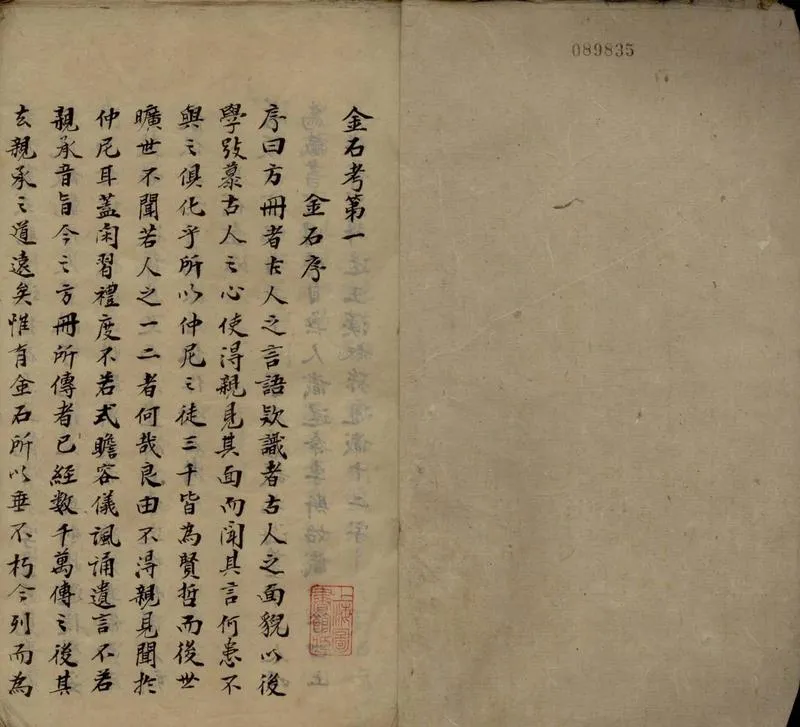 089835
金石考第一
金石序
序曰方冊者古人之言語欵識者古人之面貌以後
學跂慕古人之心使得親見其面而聞其言何患不
與之俱化乎所以仲尼之徒三千皆為賢哲而後世
曠世不聞若人之一二者何哉良由不得親見聞於
仲尼耳蓋閑習禮度不若式瞻容儀諷誦遺言不若
親承音旨今之方冊所傳者已經數千萬傳之後其
去親承之道遠矣惟有金石所以垂不朽今列而為
上海圖
書館藏